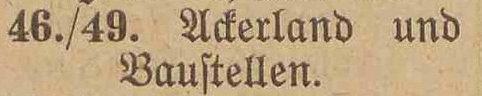 46./49. Ackerland und
Bauſtellen.